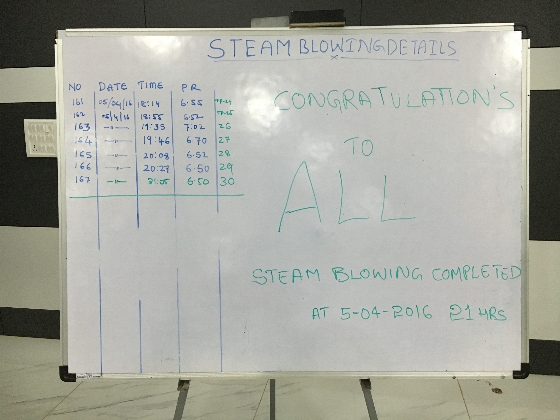 STEAM BLOWING DETAILS
NO DATE TIME PR
161 05/04/16 18:14 6.55
162 05/4/16 18:55 6.52
163 —"— 19:35 7.02 26
164 —"— 19:46 6.70 27
165 —"— 20:08 6.52 28
166 —"— 20:27 6.50 29
167 —"— 21:05 6.50 30
CONGRATULATION'S
TO
ALL
STEAM BLOWING COMPLETED
AT 5-04-2016 21 HRS